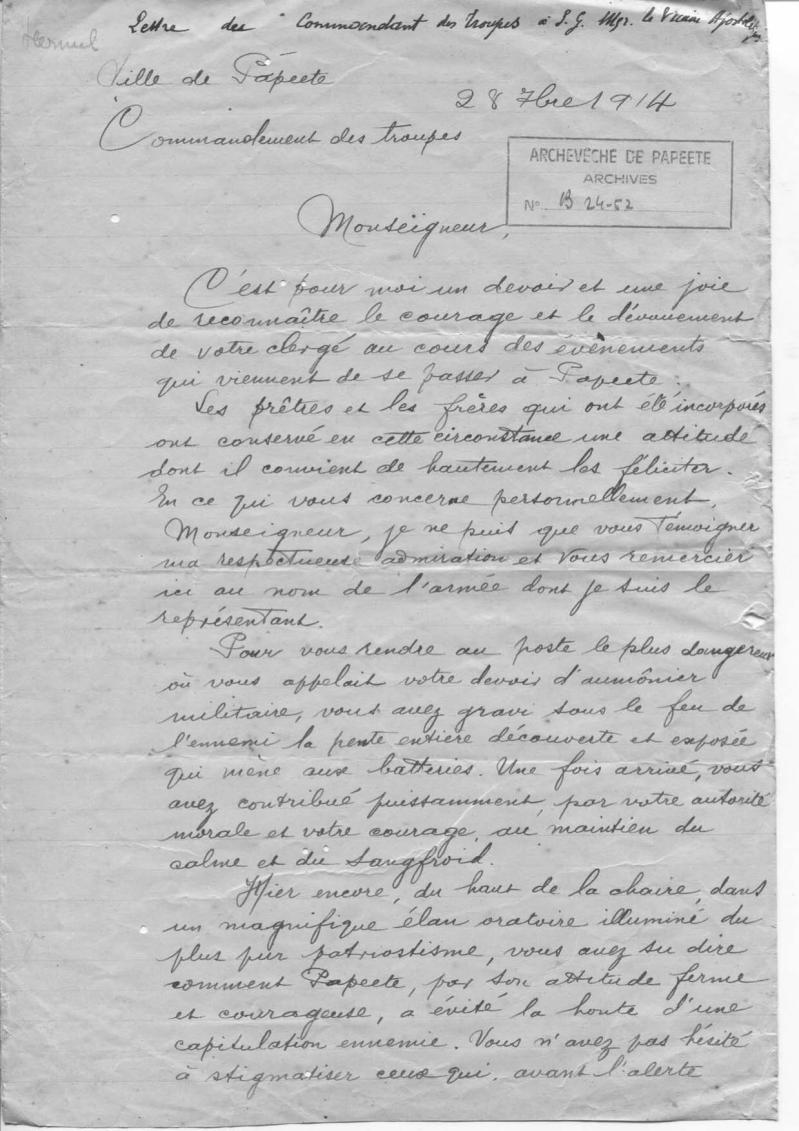 Lettre du Commandant des Troupes à S. G. Mgr. le Vicaire Apostolique
Ville de Papeete
28 7bre 1914
Commandement des troupes
ARCHEVECHE DE PAPEETE
ARCHIVES
N° B 24-52
Monseigneur,
C'est pour moi un devoir et une joie
de reconnaître le courage et le dévouement
de votre clergé au cours des évènements
qui viennent de se passer à Papeete.
Les prêtres et les frères qui ont été incorporés
ont conservé en cette circonstance une attitude
dont il convient de hautement les féliciter.
En ce qui vous concerne personnellement,
Monseigneur, je ne puis que vous témoigner
ma respectueuse admiration et vous remercier
ici au nom de l'armée dont je suis le
représentant.
Pour vous rendre au poste le plus dangereux
où vous appelait votre devoir d'aumônier
militaire, vous avez gravi sous le feu de
l'ennemi la pente entière découverte et exposée
qui mène aux batteries. Une fois arrivé, vous
avez contribué puissamment, par votre autorité
morale et votre courage, au maintien du
calme et du sangfroid.
Hier encore, du haut de la chaire, dans
un magnifique élan oratoire illuminé du
plus pur patriostisme, vous avez su dire
comment Papeete, par son attitude ferme
et courageuse, a évité la honte d'une
capitulation ennemie. Vous n'avez pas hésité
à stigmatiser ceux qui, avant l'alerte